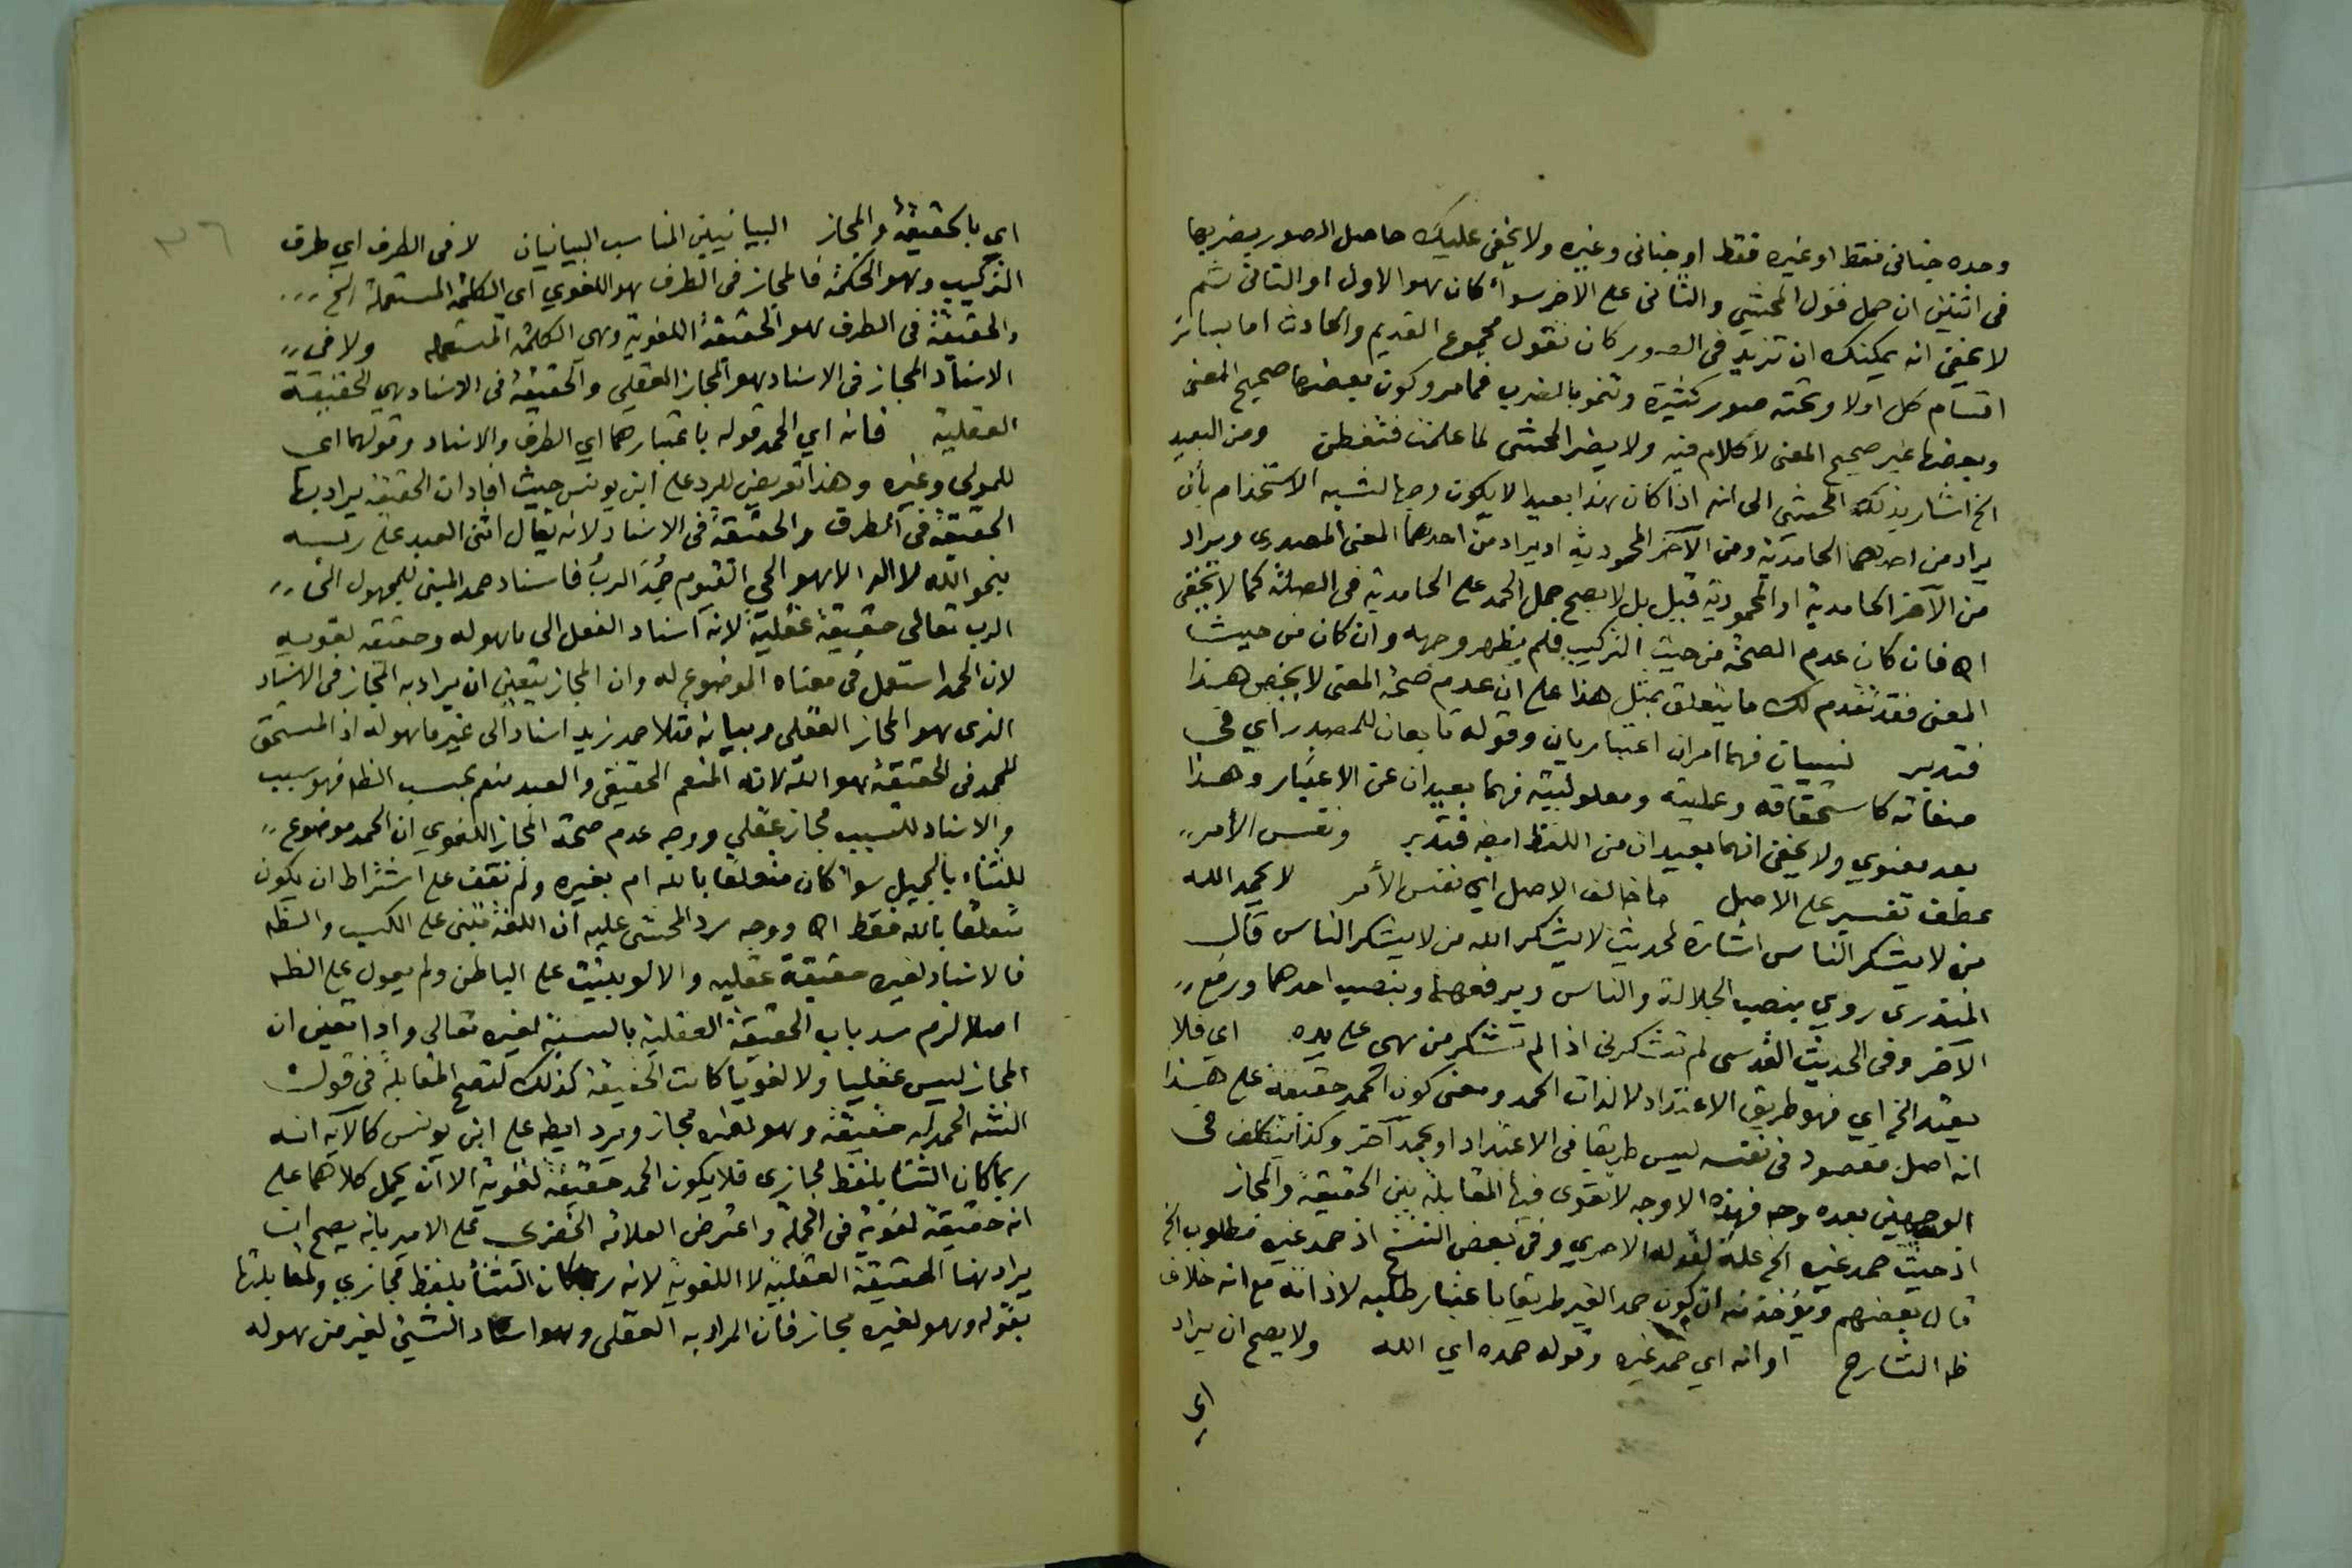 وحده جنانى فقط او غيره فقط او جنانى وغيره ولا يخفى عليك حاصل الصور بضربها
فى اثنين ان حمل قول المحشى والثانى على الاخر سواء كان هو الاول او الثانى ثم
لا يخفى انه يمكنك ان تزيد فى الصور كان تقول مجموع القديم والحادث اما بسائر
اقسام كل اولا وتحته صور كثيرة وتنمو بالضرب فما مر وكون بعضها صحيح المعنى
وبعضها غير صحيح المعنى لا كلام فيه ولا يضر المحشى لما علمت فتفطن ومن البعيد
الخ اشار بذلك المحشى الى انه اذا كان هذا بعيدا لا يكون وجها لشبه الاستخدام بأن
يراد من احدهما الحامدية ومن الآخر المحمودية او يراد من احدهما المعنى المصدرى ويراد
من الآخر الحامدية او المحمودية قيل بل لا يصح حمل الحمد على الحامدية فى الصلة كما لا يخفى
اه فان كان عدم الصحة من حيث التركيب فلم يظهر وجهه وان كان من حيث
المعنى فقد تقدم لك ما يتعلق بمثل هذا على ان عدم صحة المعنى لا يخص هذا
فتدبر نسبيان فهما امران اعتباريان وقوله تابعان للمصدر اي فى
صفاته كاستحقاقه وعليته ومعلوليته فهما بعيدان عن الاعتبار وهذا
بعد معنوي ولا يخفى انهما بعيدان من اللفظ ايضا فتدبر ونفس الأمر
عطف تفسير على الاصل ما خالف الاصل اي نفس الأمر لا يحمد الله
من لا يشكر الناس اشارة لحديث لا يشكر الله من لا يشكر الناس قال
المنذرى روي بنصب الجلالة والناس وبرفعهما وبنصب احدهما ورفع
الآخر وفى الحديث القدسى لم تشكرنى اذا لم تشكر من هى على يده اي فلا
يعتد الخ اي فهو طريق الاعتداد لا لذات الحمد ومعنى كون الحمد حقيقة على هذا
انه اصل مقصود فى نفسه ليس طريقا فى الاعتداد او بحمد آخر وكذا يتكلف فى
الوجهين بعده وجه فهذه الاوجه لا تقوى فيها المقابلة بين الحقيقة والمجاز
اذ حيث حمد غيره الخ علة لقوله الاحرى وفى بعض النسخ اذ حمد غيره مطلوب الخ
قال بعضهم ويؤخذ منه ان كون حمد الغير طريقا باعتبار طلبه لا ذاته مع انه خلاف
ظه الشارح او انه اي حمد غيره وقوله حمده اي الله ولا يصح ان يراد
اى
٣٦
اي بالحقيقة والمجاز البيانيين المناسب البيانيان لا فى الطرف اي طرف
التركيب وهو الحكمة فالمجاز فى الطرف هو اللغوي اى الكلمة المستعملة الخ
والحقيقة فى الطرف هو الحقيقة اللغوية وهى الكلمة المستعملة ولا فى
الاسناد المجاز فى الاسناد هو المجاز العقلى والحقيقة فى الاسناد هي الحقيقة
العقلية فانه اي الحمد قوله باعتبارهما اي الطرف والاسناد وقولهما اى
للمولى وغيره وهذا تعريض للرد على ابن يونس حيث افاد ان الحقيقة يراد بها
الحقيقة فى الطرف والحقيقة فى الاسناد لانه يقال اثنى العبد على ربه
بنحو الله لا اله الا هو الحي القيوم حُمِدَ الربُ فاسناد حمد المبنى للمجهول الى
الرب تعالى حقيقة عقلية لانه اسناد الفعل الى ما هو له وحقيقة لغوية
لان الحمد استعمل فى معناه الموضوع له وان المجاز يتعين ان يراد به المجاز فى الاسناد
الذى هو المجاز العقلى وبيانه مثلا حمد زيد اسناد الى غير ما هو له اذ المستحق
للحمد فى الحقيقة هو الله لانه المنعم الحقيقى والعبد منعم بحسب الظه فهو سبب
والاسناد للسبب مجاز عقلي ووجه عدم صحة المجاز اللغوي ان الحمد موضوع
للثناء بالجميل سواء كان متعلقا بالله ام بغيره ولم نقف على اشتراط ان يكون
متعلقا بالله فقط اه ووجه رد المحشى عليه ان اللغة تبنى على الكسب والظه
فالاسناد لغيره حقيقة عقليه والا لو بنيت على الباطن ولم يعول على الظه
اصلا لزم سد باب الحقيقة العقلية بالنسبة لغيره تعالى واذا تعين ان
المجاز ليس عقليا ولا لغويا كانت الحقيقة كذلك لتصح المقابلة فى قول
الشه الحمد له حقيقة وهو لغيره مجاز ويرد ايضا على ابن يونس كالآية انه
ربما كان الثناء بلفظ مجازى فلا يكون الحمد حقيقة لغوية الا ان يحمل كلاهما على
انه حقيقة لغوية فى الجملة واعترض العلامة الخضرى على الامير بانه يصح ان
يراد هنا الحقيقة العقلية لا اللغوية لانه ربما كان الثناء بلفظ مجازي ولمقابلتها
بقوله وهو لغيره مجاز فان المراد به العقلى وهو اسناد الشيئ لغير من هو له